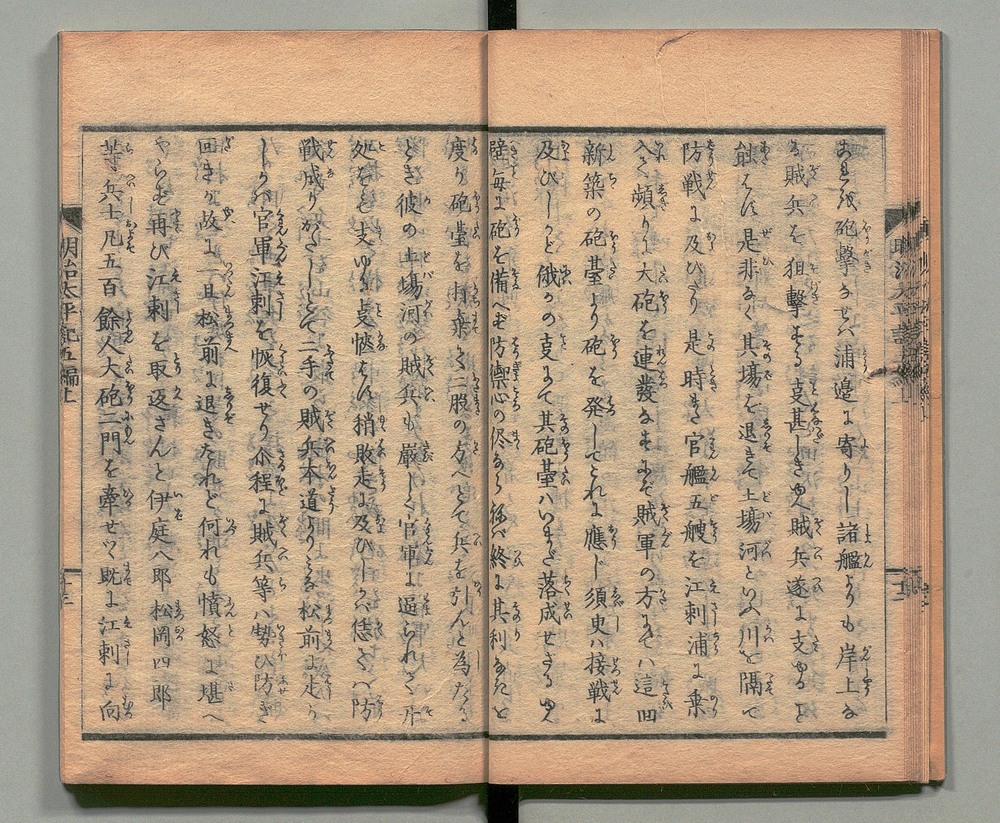 砲撃なせバ浦邉に寄りし諸艦よりも岸上な
る賊兵を狙撃する支甚しきゆへ賊兵遂に支ゆること
能はず是非なく其塲を退きて土塲河といへる川を隔て
防戦に及びたり是時また官艦五艘を江刺浦に乗
入て頻り大砲を連發なすにぞ賊軍の方にては這回
新築の砲䑓より砲を発してこれに應じ須臾ハ接戦に
及びしかど俄かの支にて其砲䑓ハいまだ落成せざるゆへ
壁毎に砲を備へず防禦心の侭ならねバ終に其利なきと
度り砲䑓を打棄て二股の方へとて兵を引んと為たる
とき彼の土塲河の賊兵も厳しく官軍に逼られて
処をも支ゆる支は稍敗走に及びしかバ防
戦成りがたしとて二手の賊兵本道より松前に走り
しかバ官軍江刺を恢復せり程に賊兵等ハ勢ひ防ぎ
回きが故に一旦松前に退きたれど何れも憤怒に堪へ
やらず再び江刺を取返さんと伊庭八郎松岡四郎
等兵士凡五百餘人大砲二門を牽せつ既に江刺に向
明治太平記五編上